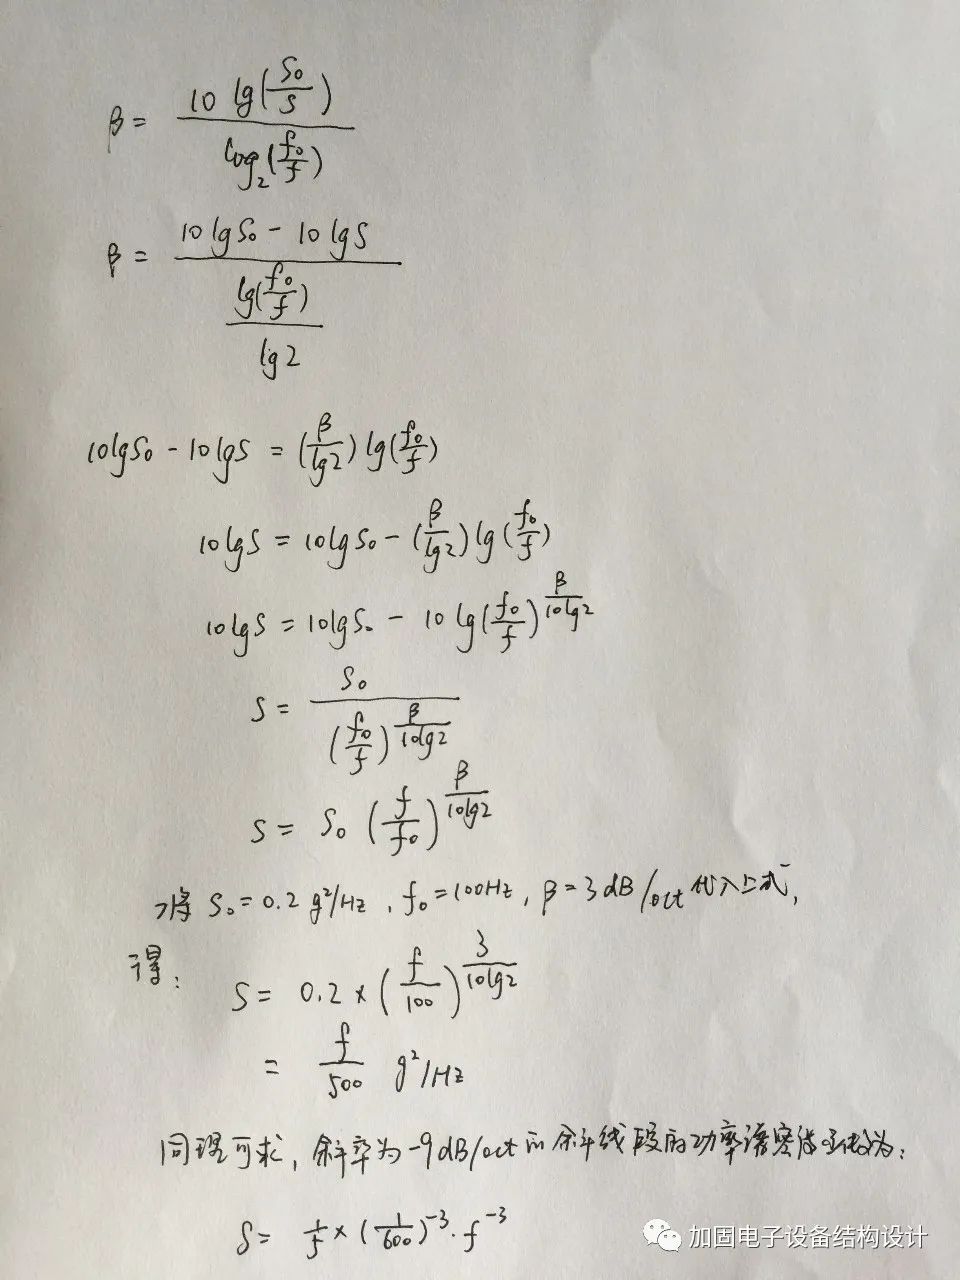 β = 10 lg(S₀/S) / log₂(f₀/f)
β = (10lgS₀ - 10lgS) / (lg(f₀/f) / lg2)
10lgS₀ - 10lgS = (β/lg2) lg(f₀/f)
10lgS = 10lgS₀ - (β/lg2) lg(f₀/f)
10lgS = 10lgS₀ - 10 lg(f₀/f)^(β/10lg2)
S = S₀ / (f₀/f)^(β/10lg2)
S = S₀ (f/f₀)^(β/10lg2)
将 S₀=0.2 g²/Hz, f₀=100Hz, β=3dB/oct 代入上式,
得:
S = 0.2 × (f/100)^(3/10lg2)
= f/500 g²/Hz
同理可求, 斜率为-9dB/oct的斜线段的功率谱密度函数为:
S = 1/5 × (1/600)^-3 · f^-3
加固电子设备结构设计